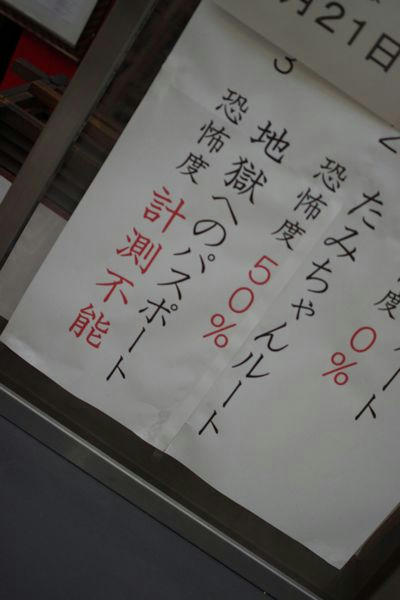 月21日
ート
度 0%
2
たみちゃんルート
恐怖度 50%
3
地獄へのパスポート
恐怖度 計測不能